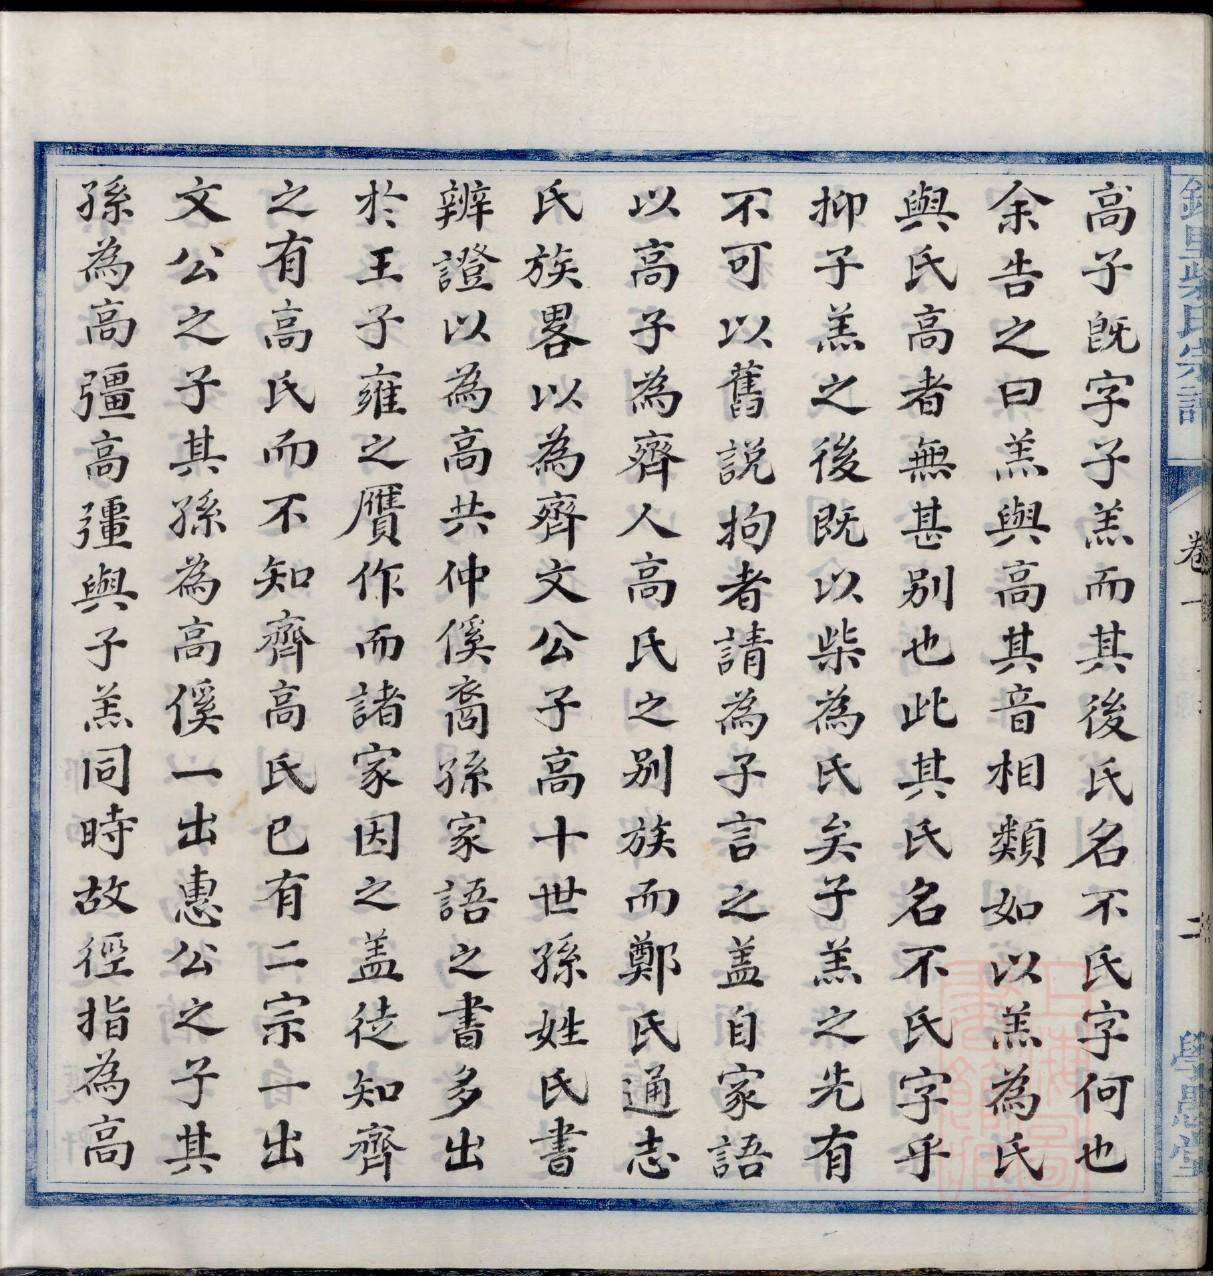 高子既字子羔而其後氏名不氏字何也
余告之曰羔與高其音相類如以羔為氏
與氏高者無甚别也此其氏名不氏字乎
抑子羔之後既以柴為氏矣子羔之先有
不可以舊説拘者請為子言之盖自家語
以高子為齊人高氏之别族而鄭氏通志
氏族畧以為齊文公子高十世孫姓氏書
辨證以為高共仲傒裔孫家語之書多出
於王子雍之贋作而諸家因之盖徒知齊
之有高氏而不知齊高氏已有二宗一出
文公之子其孫為高傒一出惠公之子其
孫為高彊高彊與子羔同時故徑指為高